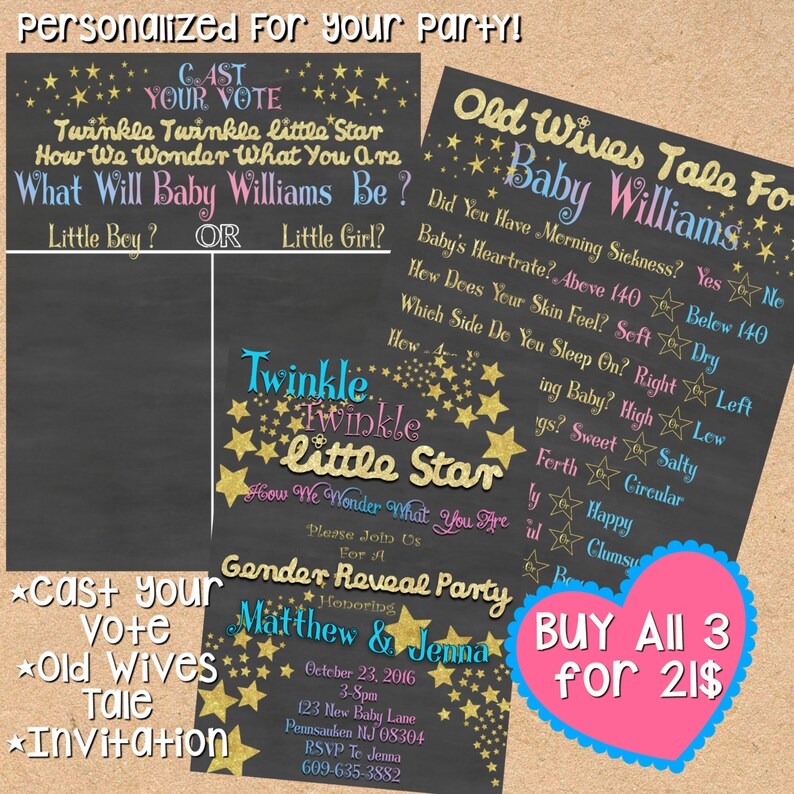 Personalized For Your Party!
CAST
YOUR VOTE
Twinkle Twinkle Little Star
How We Wonder What You Are
What Will Baby Williams Be ?
Little Boy ? OR Little Girl?
Old Wives Tale For
Baby Williams
Did You Have Morning Sickness? Yes Or No
Baby's Heartrate? Above 140 Or Below 140
How Does Your Skin Feel? Soft Or Dry
Which Side Do You Sleep On? Right Or Left
How
ing Baby? High Or Low
gs? Sweet Or Salty
Forth Or Circular
ly Or Happy
ul Or Clumsy
Or
Twinkle
Twinkle
Little Star
How We Wonder What You Are
Please Join Us
For A
Gender Reveal Party
Honoring
Matthew & Jenna
October 23, 2016
3-8pm
123 New Baby Lane
Pennsauken NJ 08304
RSVP To Jenna
609-635-3882
*Cast Your
Vote
*Old Wives
Tale
*Invitation
BUY All 3
for 21$